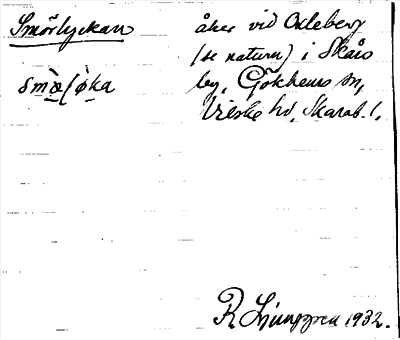 Smörlyckan
smœ̀ḷø̀ka
åker vid Oxleberg
(se naturn) i Skårs
by, Gökhems sn,
Vilske hd, Skarab. l.
R Ljunggren 1932.